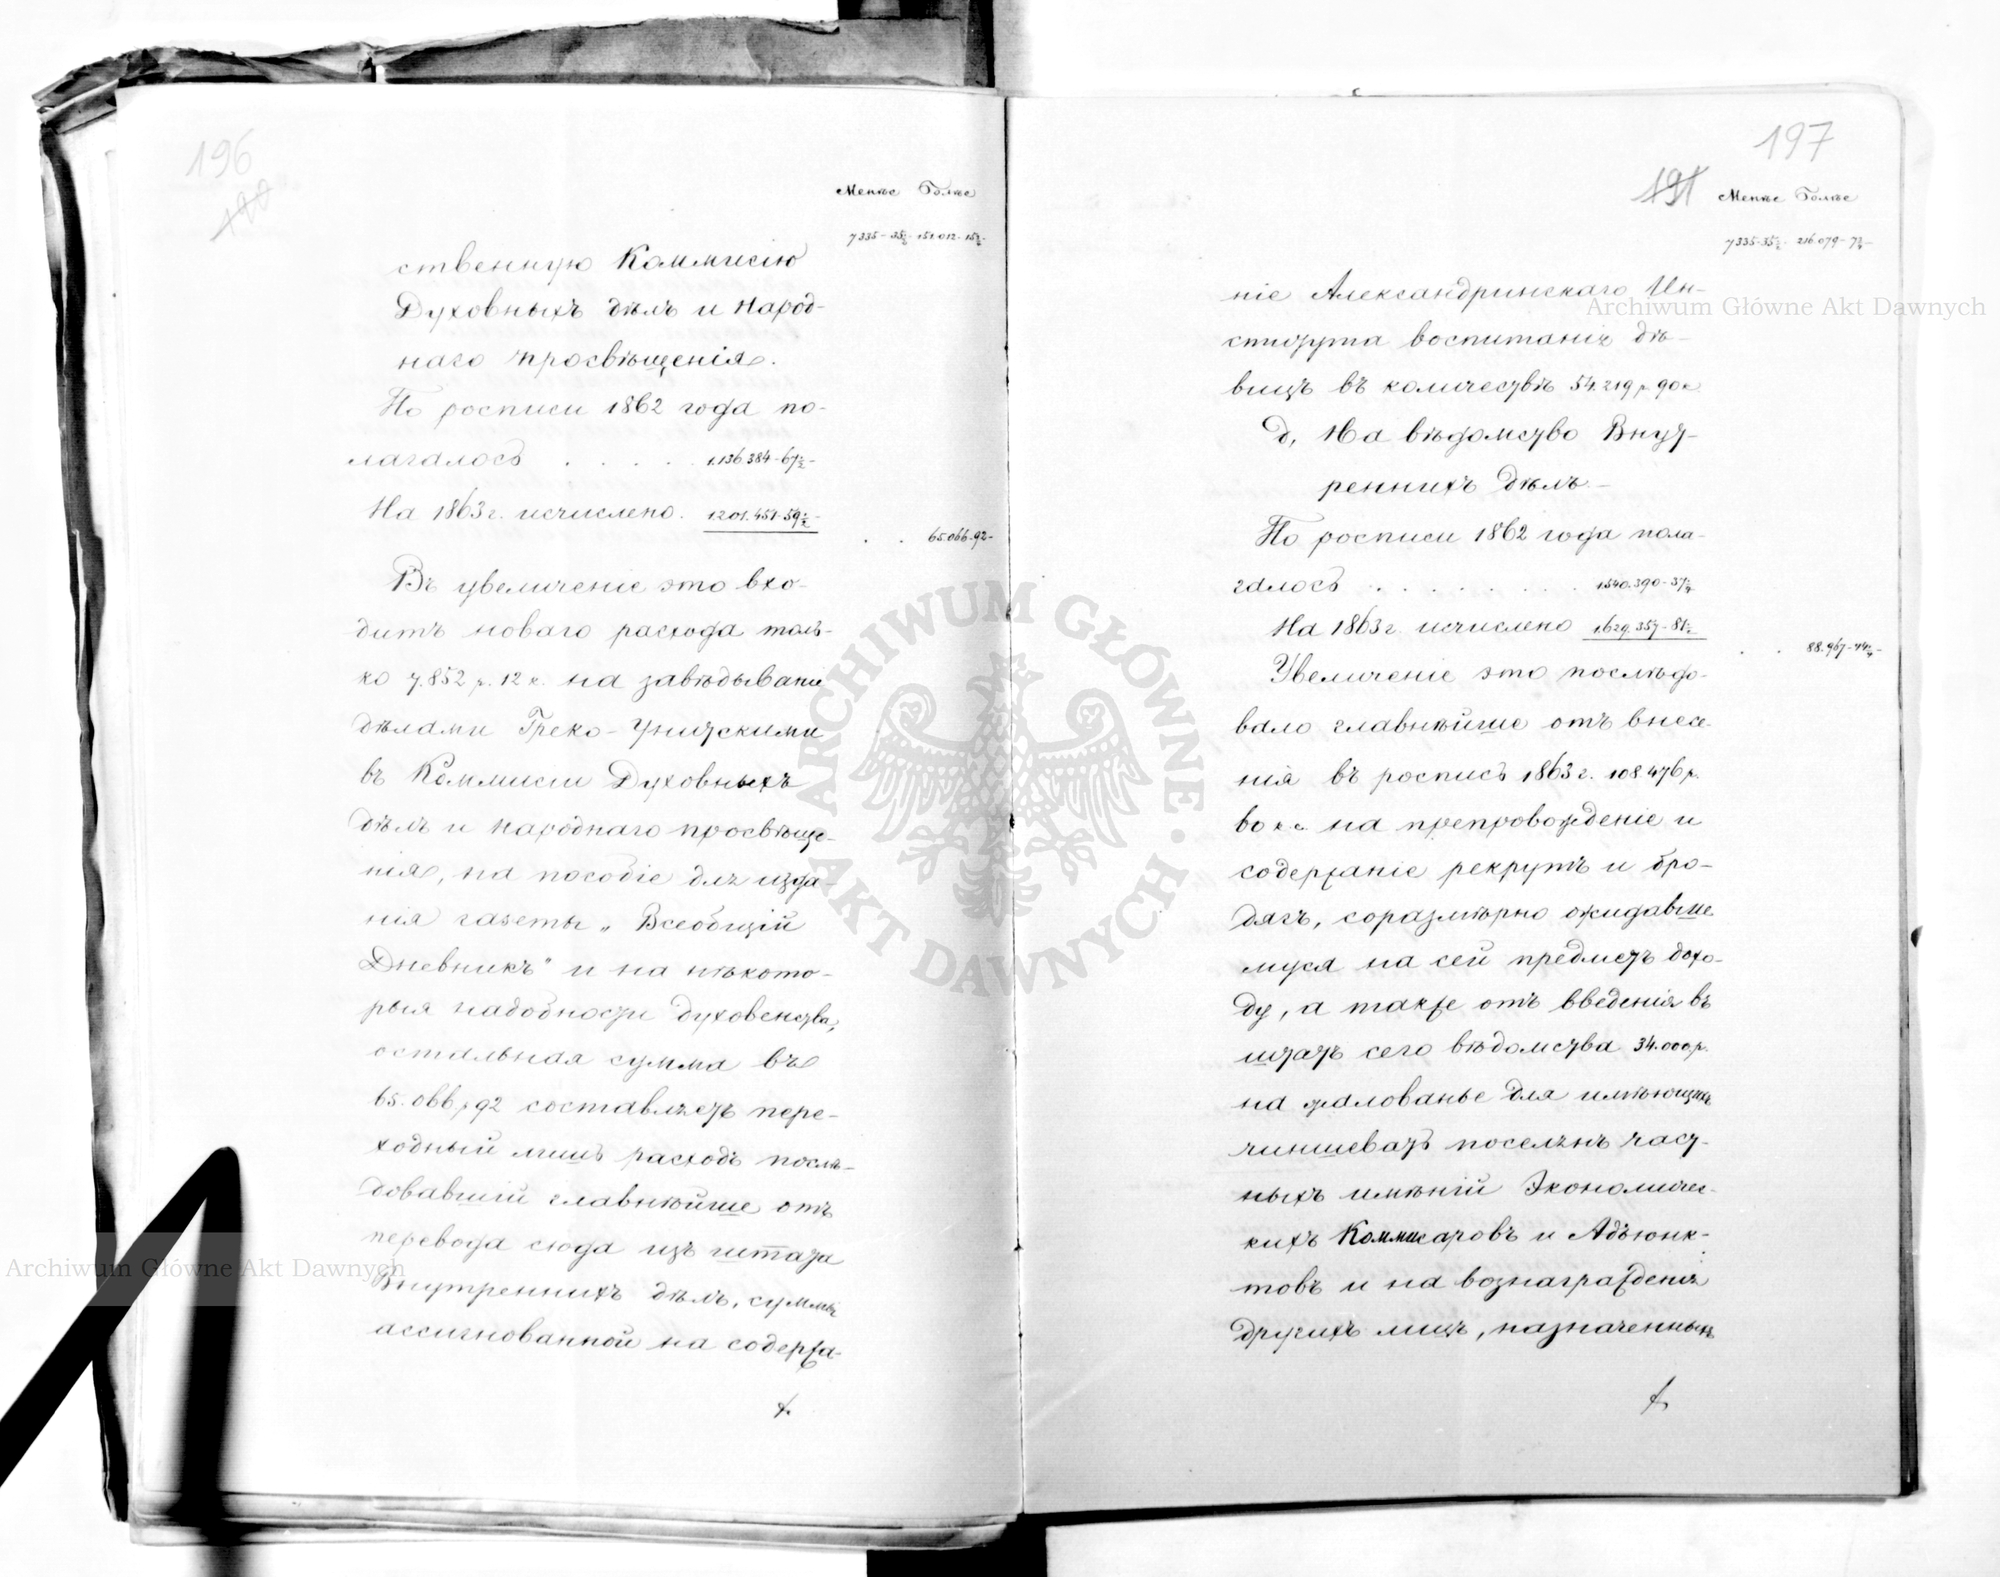 196
190
Менѣе Болѣе
7335-35½ 151.012-15½-
ственную Коммисію
Духовныхъ дѣлъ и Народ-
наго просвѣщенія.
По росписи 1862 года по-
лагалось . . . . 1.136.384-67½-
На 1863 г. исчислено. 1201.451-59½-
. . 65.066-92-
Въ увеличеніе это вхо-
дитъ новаго расхода толь-
ко 7.852 р. 12 к. на завѣдываніе
дѣлами Греко-Унитскими
въ Коммисіи Духовныхъ
дѣлъ и народнаго просвѣще-
нія, на пособіе для изда-
нія газеты „Всеобщій
Дневникъ" и на нѣкото-
рыя надобности духовенства,
остальная сумма въ
65.066 р 92 составляетъ пере-
ходный лишь расходъ послѣ-
довавшій главнѣйше отъ
перевода сюда изъ штата
Внутреннихъ дѣлъ, суммы
ассигнованной на содержа-
197
191
Менѣе Болѣе
7335-35½- 216.079-7½-
ніе Александринскаго Ин-
ститута воспитанія дѣ-
вицъ въ количествѣ 54.219 р 90 к
д, На вѣдомство Внут-
реннихъ дѣлъ.-
По росписи 1862 года пола-
галось . . . . . . . 1.540.390-37¼
На 1863 г. исчислено 1.629.357-81½
. . 88.967-44¼-
Увеличеніе это послѣдо-
вало главнѣйше отъ внесе-
нія въ роспись 1863 г. 108.476 р.
80 к. на препровожденіе и
содержаніе рекрутъ и бро-
дягъ, соразмѣрно ожидавше
муся на сей предметъ дохо-
ду, а также отъ введенія въ
штатъ сего вѣдомства 34.000 р.
на жалованье для имѣющихъ
чиншевать поселянъ част-
ныхъ имѣній Экономичес-
кихъ Коммисаровъ и Адъюнк-
товъ и на вознагражденія
другихъ лицъ, назначенныхъ